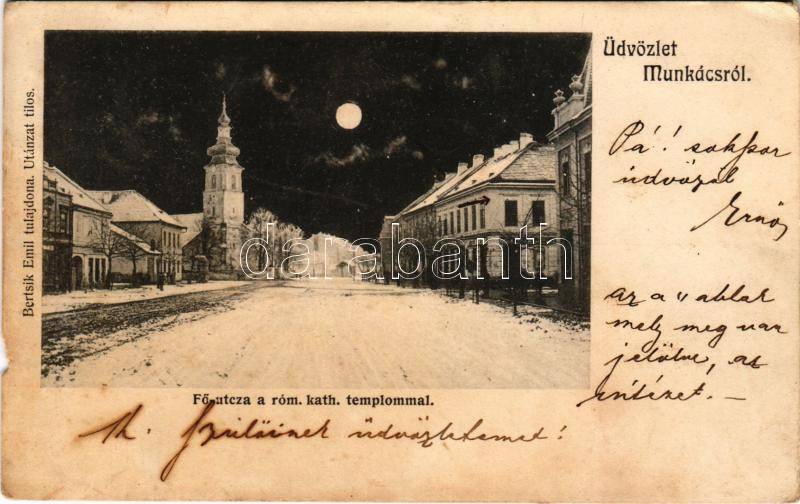 Üdvözlet
Munkácsról.
Bertsik Emil tulajdona. Utánzat tilos.
Pá! sokszor
üdvözöl
Ernő
az a " ablak
mely meg van
jelölve, az
intézet. —
darabanth
Fő-utcza a róm. kath. templommal.
Szülőinek üdvözletemet!